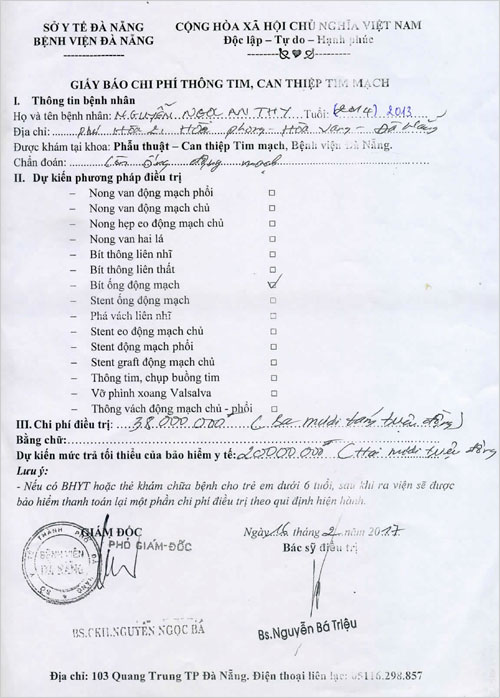 SỞ Y TẾ ĐÀ NẴNG
BỆNH VIỆN ĐÀ NẴNG
CỘNG HÒA XÃ HỘI CHỦ NGHĨA VIỆT NAM
Độc lập – Tự do – Hạnh phúc
GIẤY BÁO CHI PHÍ THÔNG TIM, CAN THIỆP TIM MẠCH
I. Thông tin bệnh nhân
Họ và tên bệnh nhân: NGUYỄN NGỌC AN THY Tuổi: (2014) 2013
Địa chỉ: Phú Hòa Hòa Phong - Hòa Vang - Đà Nẵng
Được khám tại khoa: Phẫu thuật – Can thiệp Tim mạch, Bệnh viện Đà Nẵng.
Chẩn đoán: Còn ống động mạch
II. Dự kiến phương pháp điều trị
– Nong van động mạch phổi □
– Nong van động mạch chủ □
– Nong hẹp eo động mạch chủ □
– Nong van hai lá □
– Bít thông liên nhĩ □
– Bít thông liên thất □
– Bít ống động mạch ☑
– Stent ống động mạch □
– Phá vách liên nhĩ □
– Stent eo động mạch chủ □
– Stent động mạch phổi □
– Stent graft động mạch chủ □
– Thông tim, chụp buồng tim □
– Vỡ phình xoang Valsalva □
– Thông vách động mạch chủ - phổi □
III. Chi phí điều trị: 38.000.000 (Ba mươi tám triệu đồng)
Bằng chữ:
Dự kiến mức trả tối thiểu của bảo hiểm y tế: 20000000 (Hai mươi triệu đồng)
Lưu ý:
- Nếu có BHYT hoặc thẻ khám chữa bệnh cho trẻ em dưới 6 tuổi, sau khi ra viện sẽ được
bảo hiểm thanh toán lại một phần chi phí điều trị theo qui định hiện hành.
Ngày 16 tháng 2 năm 2017
GIÁM ĐỐC
PHÓ GIÁM ĐỐC
Bác sỹ điều trị
BỆNH VIỆN
ĐÀ NẴNG
BS.CKII.NGUYỄN NGỌC BÁ
Bs.Nguyễn Bá Triệu
Địa chỉ: 103 Quang Trung TP Đà Nẵng. Điện thoại liên lạc: 05116.298.857